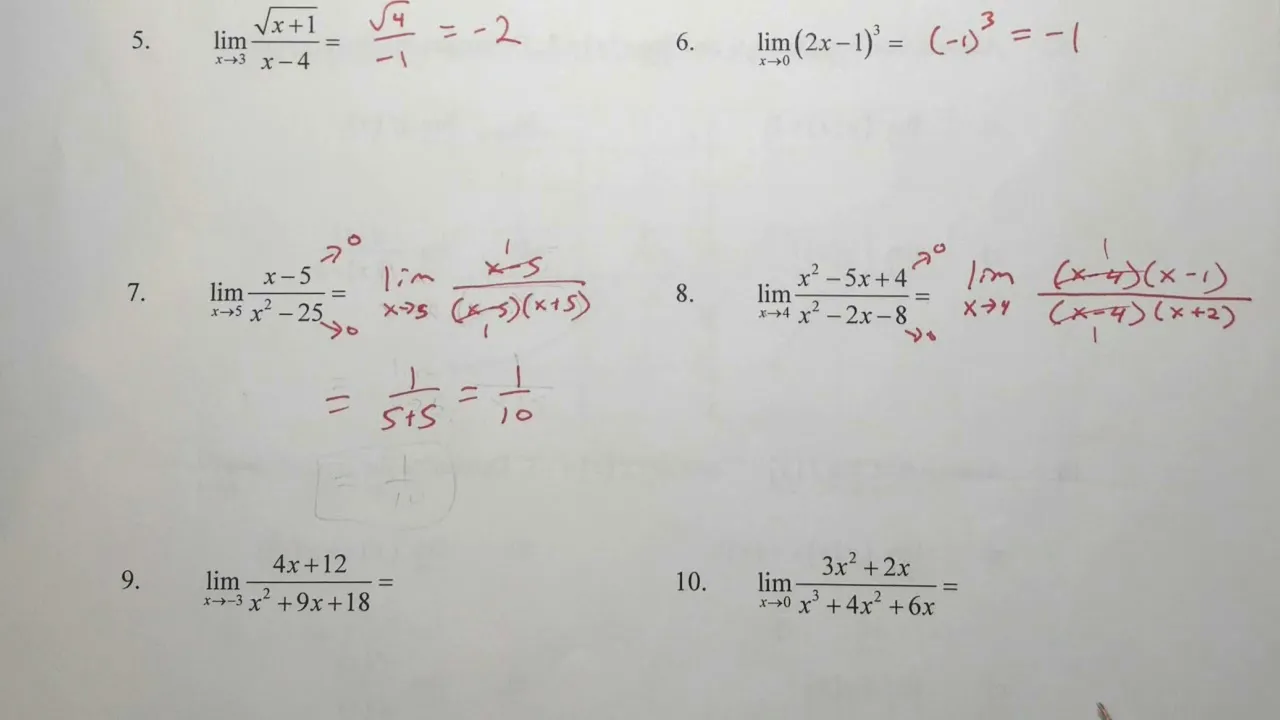 5. lim x→3 √(x+1) / (x−4) = √4 / −1 = −2
6. lim x→0 (2x−1)³ = (−1)³ = −1
7. lim x→5 (x−5) →0 / (x²−25) →0 = lim x→5 (x−5) 1 / (x−5)(x+5) 1
= 1 / (5+5) = 1/10
= 1/10
8. lim x→4 (x²−5x+4) →0 / (x²−2x−8) →0 = lim x→4 (x−4)(x−1) 1 / (x−4)(x+2) 1
9. lim x→−3 (4x+12) / (x²+9x+18) =
10. lim x→0 (3x²+2x) / (x³+4x²+6x) =